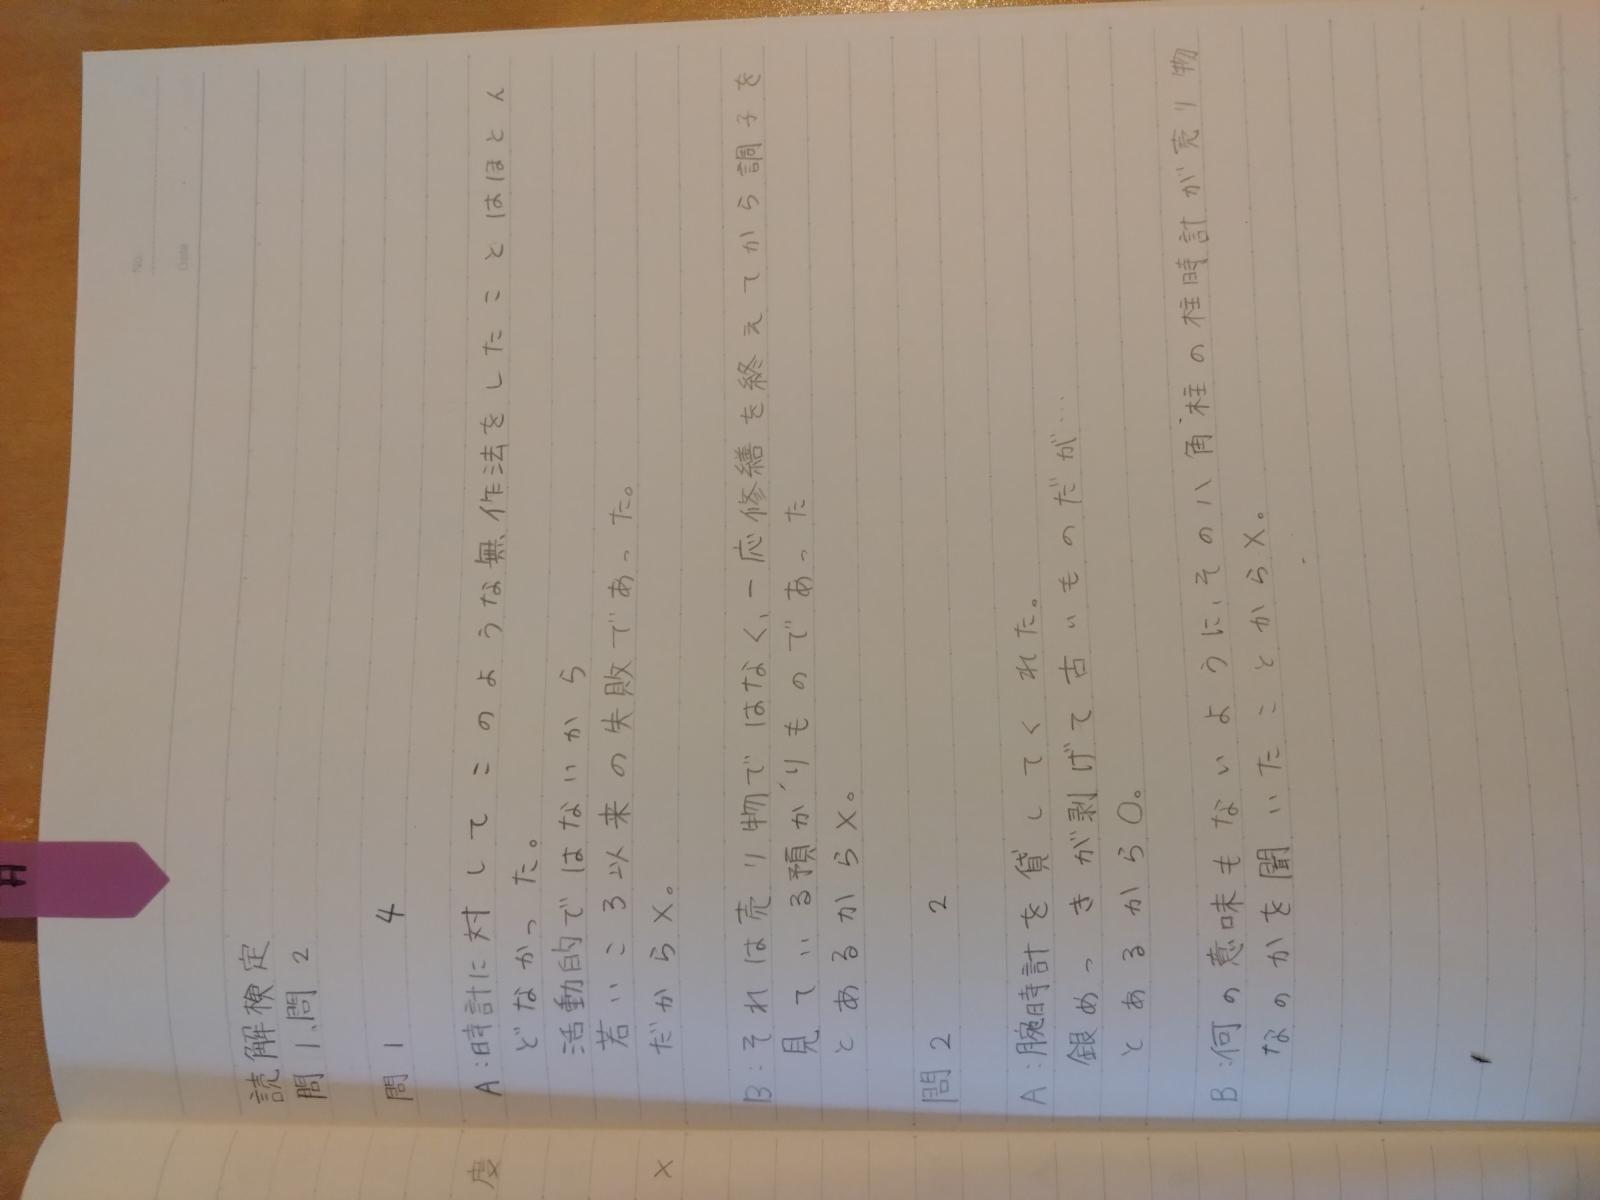 No.
Date
読解検定
問1、問2
問1 4
A:時計に対してこのような無作法をしたことはほとん
どなかった。
活動的ではないから
若いころ以来の失敗であった。
だから×。
B:それは売り物ではなく、一応修繕を終えてから調子を
見ている預かりものであった
とあるから×。
問2 2
A:腕時計を貸してくれた。
銀めっきが剥げて古いものだが…
とあるから○。
B:何の意味もないようにその八角柱の柱時計が売り物
なのかを聞いたことから×。
度
×